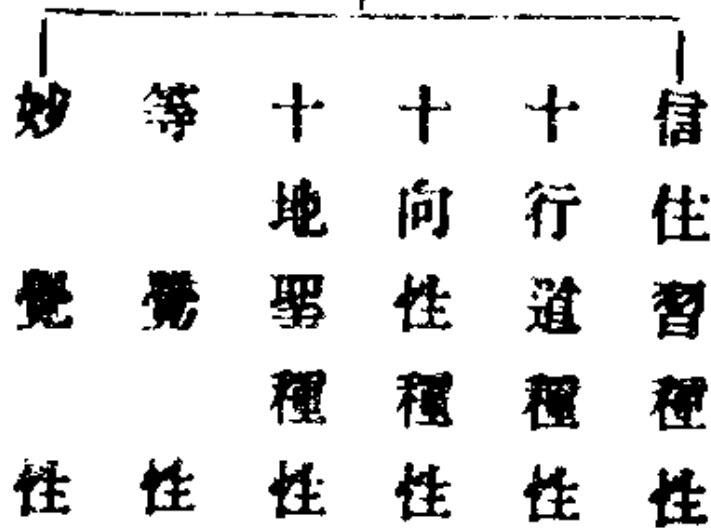 信住習種性
十行道種性
十向性種性
十地聖種性
等覺性
妙覺性